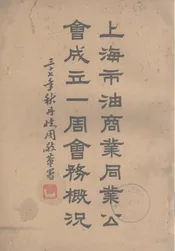 上海市油商業同業公
會成立一周會務概況
三十七年秋丹徒周敬華署